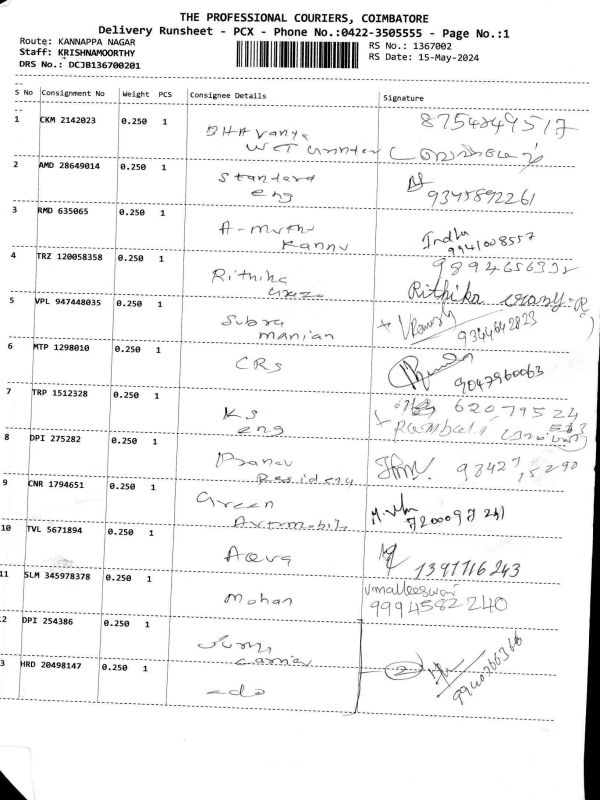 THE PROFESSIONAL COURIERS, COIMBATORE
Delivery Runsheet - PCX - Phone No.:0422-3505555 - Page No.:1
Route: KANNAPPA NAGAR
Staff: KRISHNAMOORTHY
DRS No.: DCJB136700201
RS No.: 1367002
RS Date: 15-May-2024
S No Consignment No Weight PCS Consignee Details Signature
1 CKM 2142023 0.250 1 BHAVanya
2 AMD 28649014 0.250 1 Standard eng 9345892261
3 RMD 635065 0.250 1 A-muthu Kannu Indhu 9941008557
4 TRZ 120058358 0.250 1 Rithika Rithika
5 VPL 947448035 0.250 1 Subra manian 9344642823
6 MTP 1298010 0.250 1 CRS 9047960063
7 TRP 1512328 0.250 1 KS eng 62079524
8 DPI 275282 0.250 1 Pranav Residency
9 CNR 1794651 0.250 1 Green Automobile
10 TVL 5671894 0.250 1 Aqua 1397716243
11 SLM 345978378 0.250 1 Mohan Vmalleeswari 9994582240
2 DPI 254386 0.250 1
3 HRD 20498147 0.250 1 -do 2